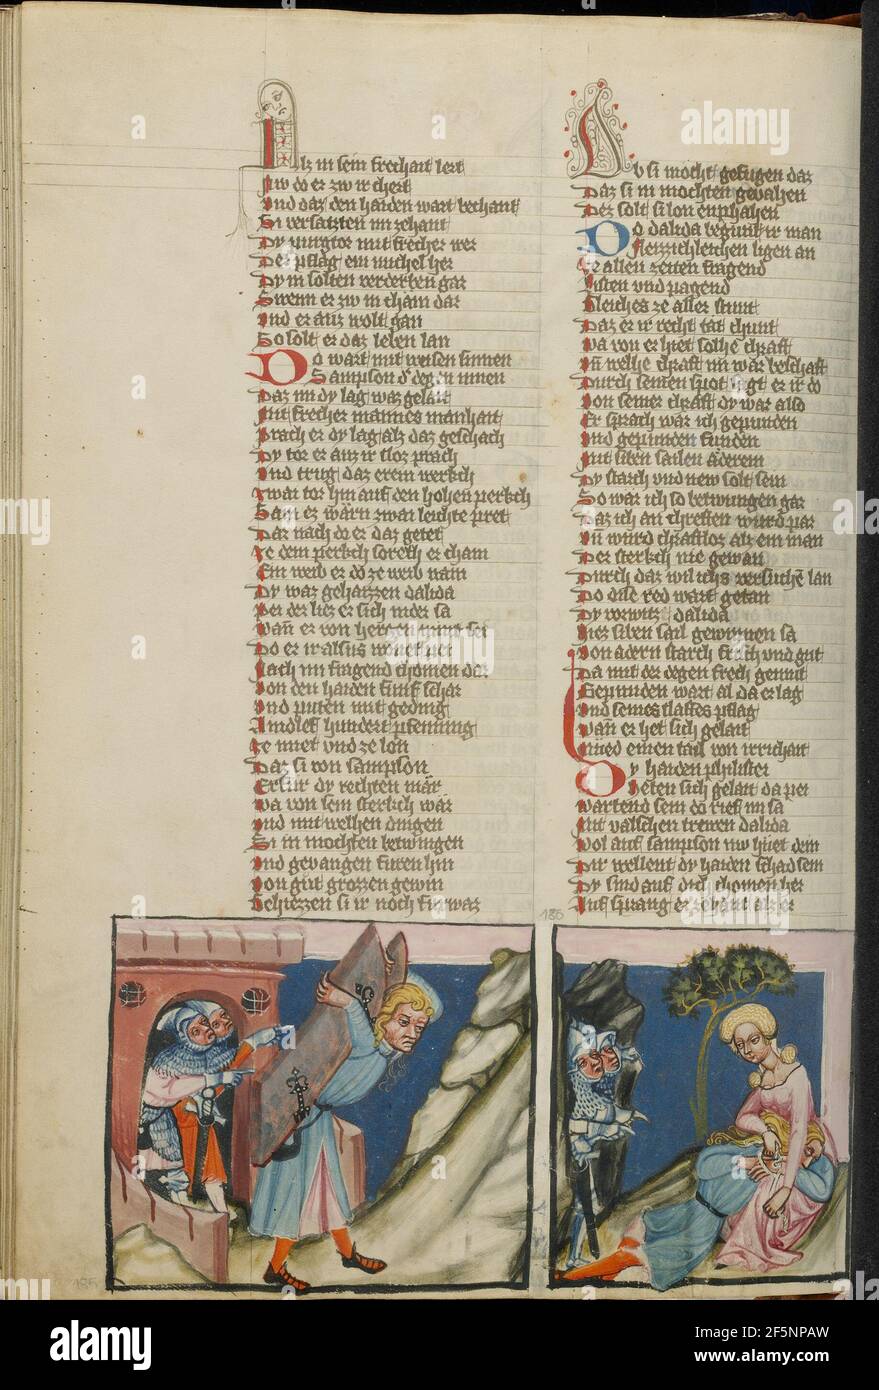 Alz in sein frechait lert
Nw do er zw ir chert
Vnd daz den haiden wart bechant
Si versatzten im zehant
Dy purgtor mit frecher wer
Der pflag ein michel her
Dy in solten verderben gar
Swenn er zw in cham dar
Vnd er auz wolt gan
So solt er daz leben lan
Do wart mit weisen sinnen
Sampson d' degen innen
Daz im dy lag waz gelait
Mit frecher mannes manhait
Prach er dy lag alz daz geschach
Dy tor er auz ir sloz prach
Vnd trug daz erein werkch
zwai tor hin auf den hohen perkch
Sam er warn zwai leichte pret
Dar nach do er daz getet
ze dem perkch Sorech er cham
Ein weib er do ze weib nam
Dy waz gehaizzen dalida
Pei der liez er sich nider sa
Wan er von hertzen
Do er ir alsus
Nach im fragend chomen dar
Von den haiden funf schar
Vnd puten mit geding
Aindlef hundert pfenning
ze miet vnd ze lon
Daz si von Sampson
Erfur dy rechten mar
Wa von sein sterkch war
Vnd mit welhen dingen
Si in mochten betwingen
Vnd gevangen furen hin
Von gut grozzen gewin
Gehiezzen si ir noch furwar
Ob si mocht gefugen daz
Daz si in mochten gevahen
Der solt si lon enphahen
Do dalida begunt ir man
Fleizzichleichen ligen an
ze allen zeiten fragend
Pitten vnd pagend
Gleiches ze aller stunt
Daz er ir recht tat chunt
Wa von er hiet solhe chraft
Vn welhe chraft im war beschaft
Durch seinen spot sagt er ir do
Von seiner chraft dy war also
Er sprach war ich gepunden
Vnd gepunden funden
Mit siben sailen aderein
Dy starch vnd new solt sein
So war ich so betwungen gar
Daz ich an chreften wurd par
Vn wurd chraftloz alz ein man
Der sterkch nie gewan
Durch daz wil ichs versuchen lan
Do dise red wart getan
Dy vorwitz dalida
Hiez siben sail gewinnen sa
Von adern starch frisch vnd gut
Da mit der degen frech gemut
Gepunden wart al da er lag
Vnd seines slaffes pflag
Wan er het sich gelait
Mued einen tail von irrichait
Dy haiden philister
Heten sich gelait da pei
Wartend sein do rief im sa
Mit valschen trewen dalida
Wol auf sampson nw huet dein
Dir wellent dy haiden schad sein
Dy sind auf dich chomen her
Auf sprang er zehant alz er
186
186
alamy
Image ID: 2F5NPAW
www.alamy.com